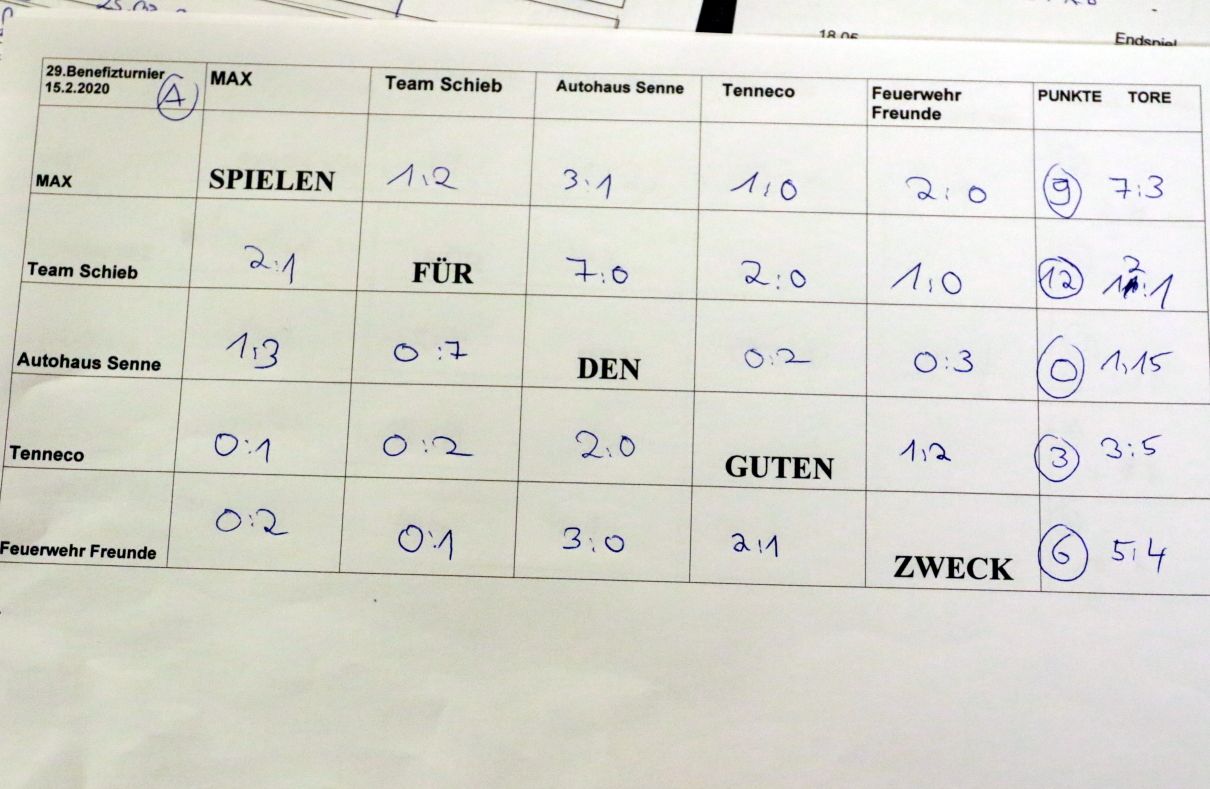 18.05
Endspiel
29.Benefizturnier
15.2.2020
A
MAX
Team Schieb
Autohaus Senne
Tenneco
Feuerwehr
Freunde
PUNKTE TORE
MAX SPIELEN 1:2 3:1 1:0 2:0 9 7:3
Team Schieb 2:1 FÜR 7:0 2:0 1:0 12 12:1
Autohaus Senne 1:3 0:7 DEN 0:2 0:3 0 1:15
Tenneco 0:1 0:2 2:0 GUTEN 1:2 3 3:5
Feuerwehr Freunde 0:2 0:1 3:0 2:1 ZWECK 6 5:4